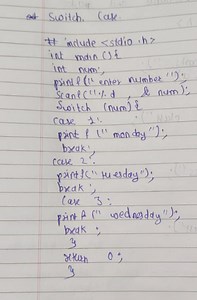 Switch Case
# include <stdio.h>
int main () {
int num;
printf (" enter number ");
Scanf (" % d , & num);
Switch (num) {
Case 1 :
print f (" monday ");
break;
case 2 :
printf (" Tuesday ");
break ;
Case 3 :
print f (" wednesday ");
break ;
}
return 0 ;
}